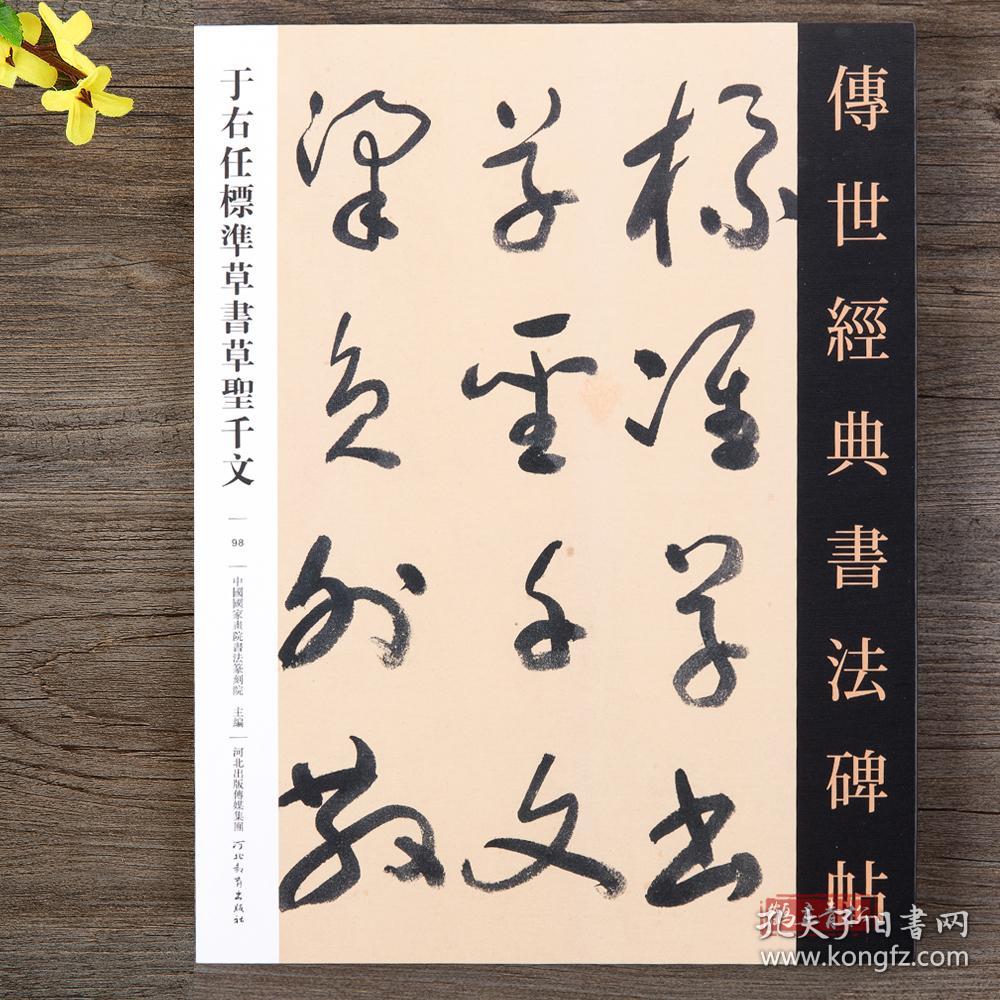 傳世經典書法碑帖
標准草書
草聖千文
梁員外散
于右任標準草書草聖千文
98
中國國家畫院書法篆刻院 主編
河北出版傳媒集團
河北教育出版社
孔夫子旧书网
www.kongfz.com